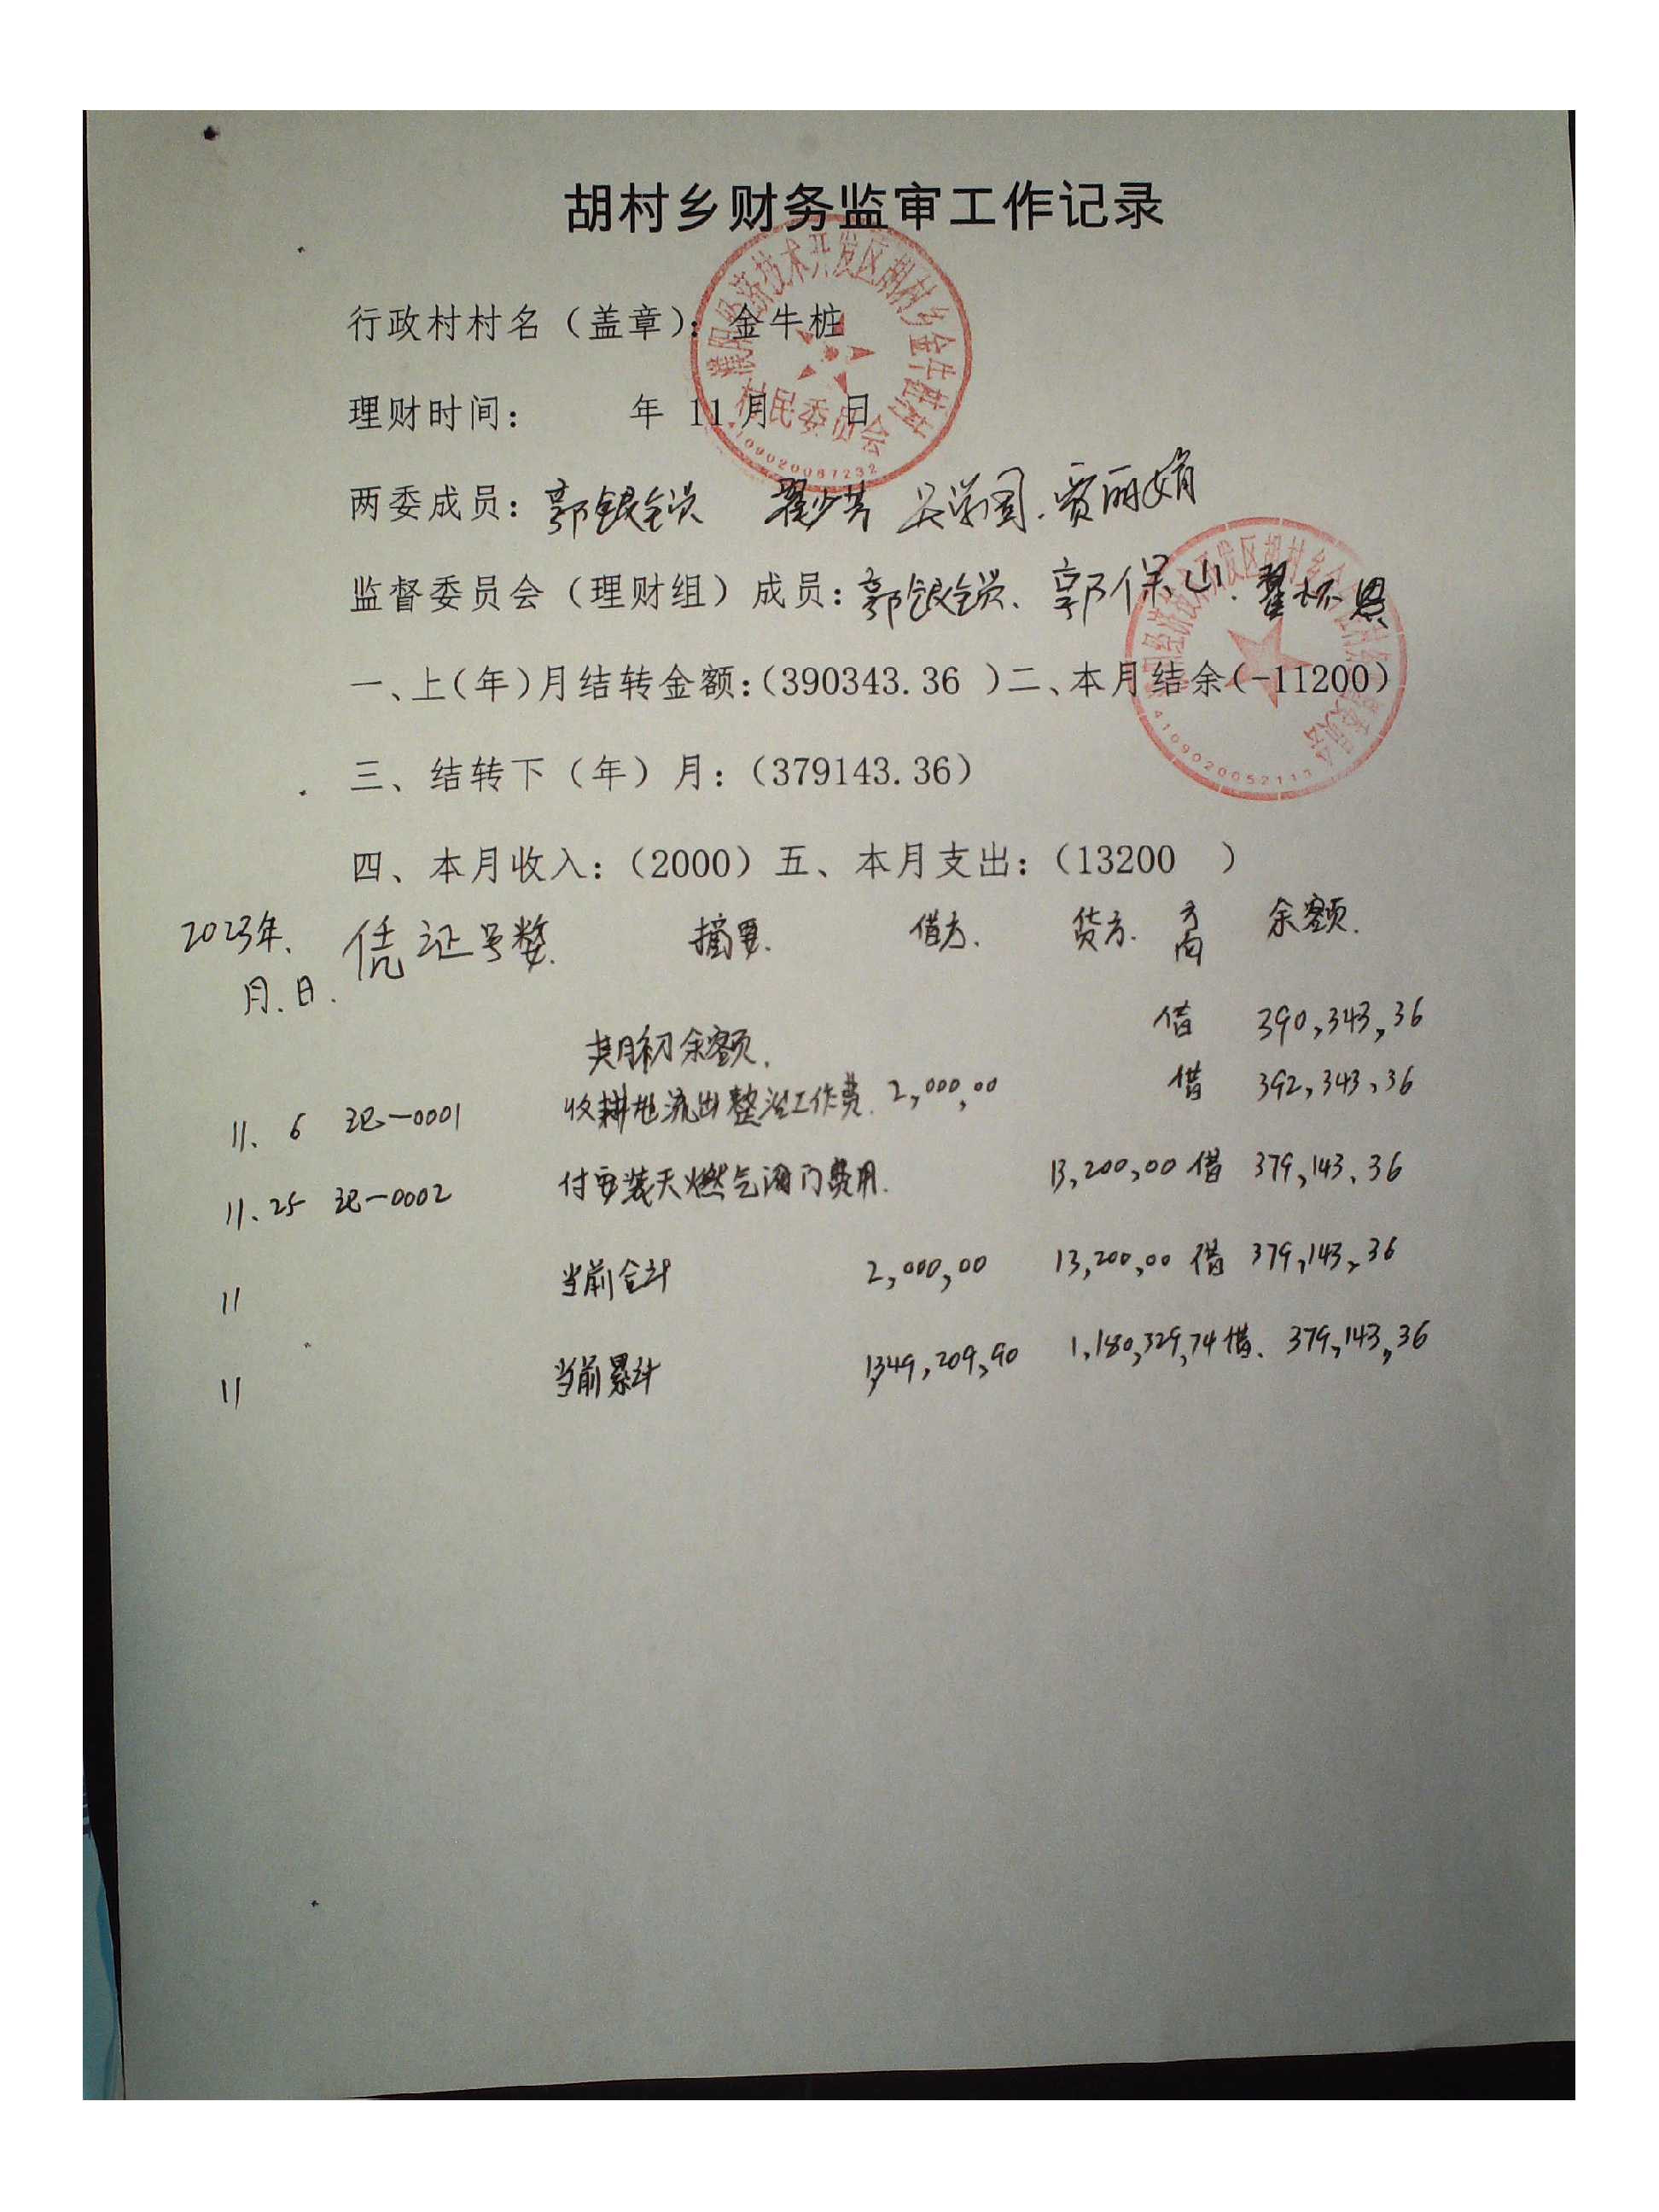 胡村乡财务监审工作记录
行政村村名（盖章）：金牛桩
理财时间： 年 11 月 日
村民委员会
4109020067232
两委成员：郭银锁 翟少芳 吴学国、贾丽娟
监督委员会（理财组）成员：郭银锁、郭保山、翟怀恩
一、上（年）月结转金额：（390343.36 ）二、本月结余（-11200）
4109020052111
三、结转下（年）月：（379143.36）
四、本月收入：（2000）五、本月支出：（13200 ）
2023年、 凭证号数 摘要 借方 贷方 方向 余额
月.日.
月初余额 借 390,343,36
11、6 记-0001 收耕地流出整治工作费 2,000,00 借 392,343,36
11、25 记-0002 付安装天燃气阀门费用 13,200,00 借 379,143,36
11 当前合计 2,000,00 13,200,00 借 379,143,36
11 当前累计 1,349,209,90 1,180,329,74 借、 379,143,36